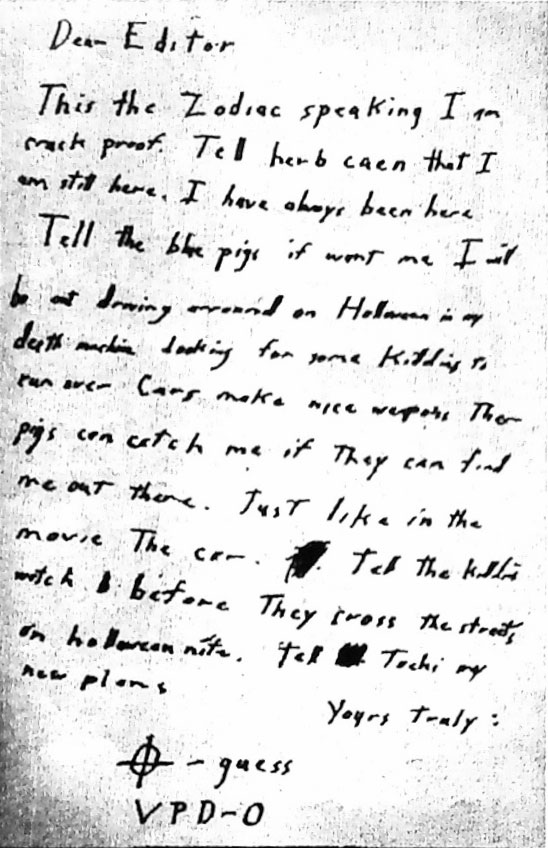 Dear Editor
This the Zodiac speaking I am
crack proof. Tell herb caen that I
am still here. I have always been here
Tell the blue pigs if want me I will
be out driving arround on Halloween in my
death machine looking for some Kiddies to
run over Cars make nice weapons The
pigs can catch me if They can find
me out there. Just like in the
movie The car. Tell the kiddies
watch before They cross the streets
on halloween nite. Tell Tochi my
new plans
Yours Truly :
- guess
VPD-0